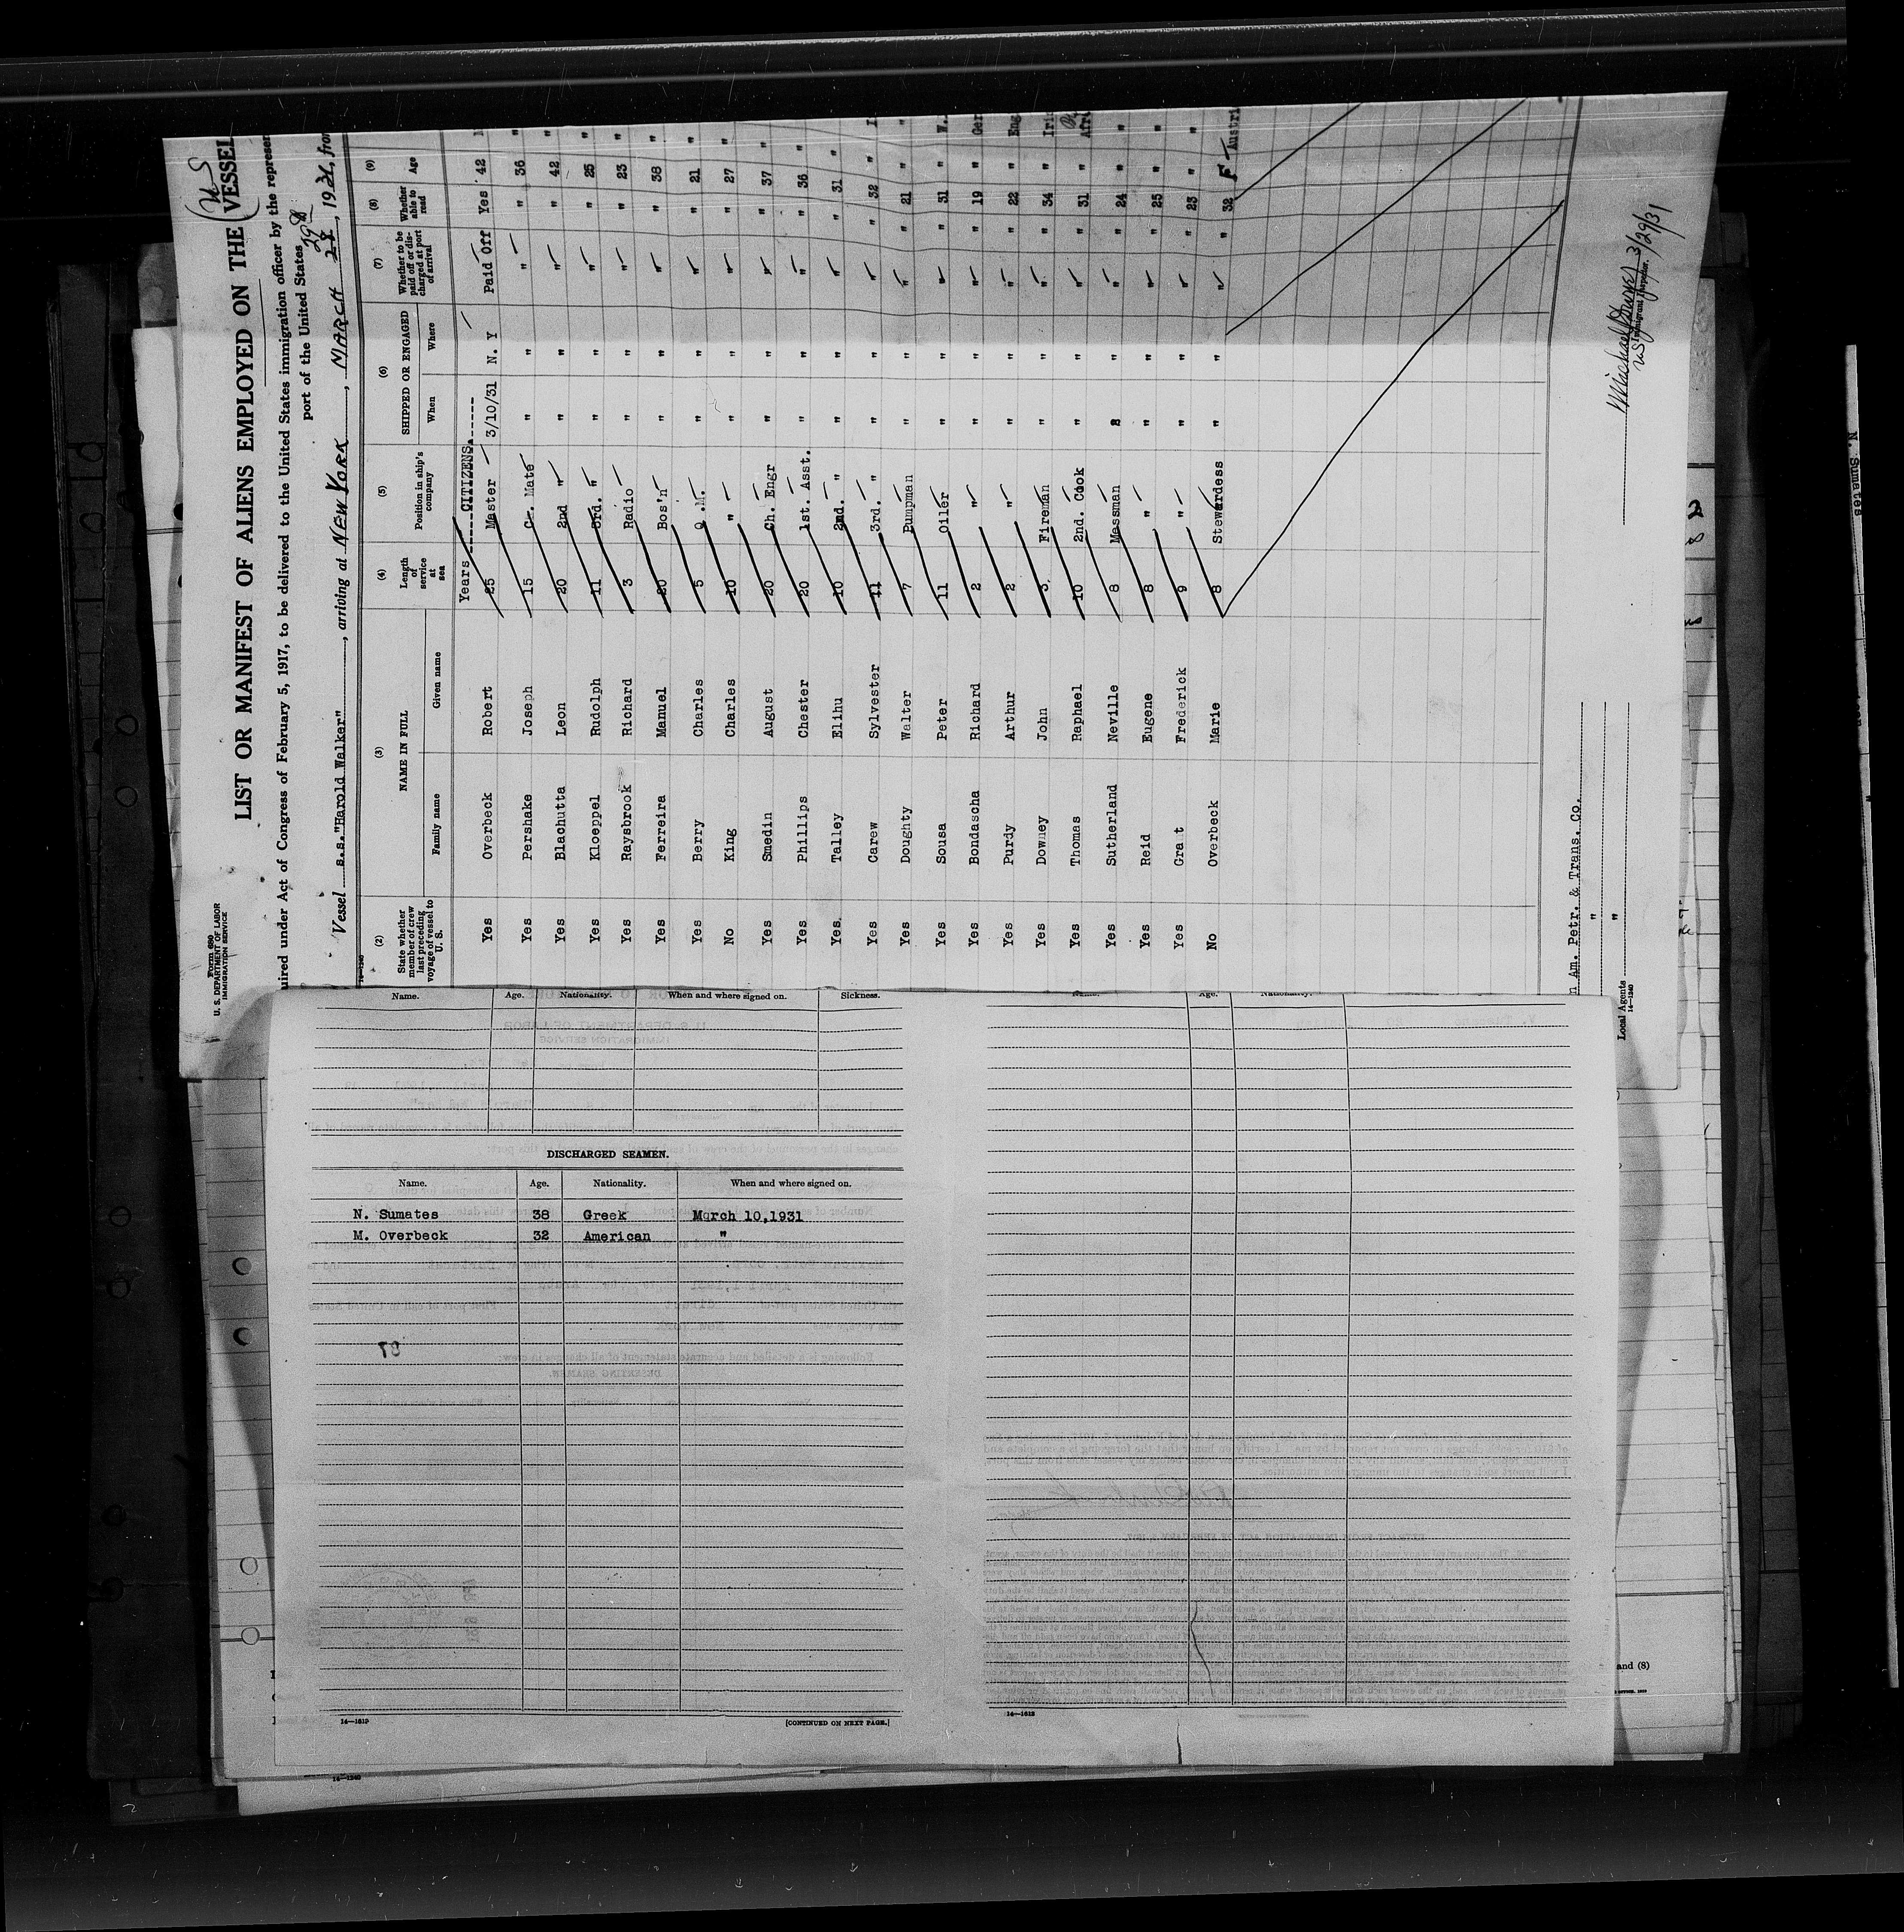 Form 680
U. S. DEPARTMENT OF LABOR
IMMIGRATION SERVICE
LIST OR MANIFEST OF ALIENS EMPLOYED ON THE (US VESSEL
uired under Act of Congress of February 5, 1917, to be delivered to the United States immigration officer by the represen
port of the United States
Vessel s.s."Harold Walker", arriving at NEW YORK, MARCH 29th, 1931, from
14—1240
(2) (3) (4) (5) (6) (7) (8) (9)
State whether member of crew last preceding voyage of vessel to U. S. NAME IN FULL Family name Given name Length of service at sea Position in ship's company SHIPPED OR ENGAGED When Where Whether to be paid off or discharged at port of arrival Whether able to read Age
Years CITIZENS.
Yes Overbeck Robert 25 Master 3/10/31 N. Y Paid Off Yes 42
Yes Pershake Joseph 15 C. Mate " " " " 36 "
Yes Blachutta Leon 20 2nd " " " " " 42 "
Yes Kloeppel Rudolph 11 3rd. " " " " " 25 "
Yes Raysbrook Richard 3 Radio " " " " 23 "
Yes Ferreira Manuel 20 Bos'n " " " " 38 "
Yes Berry Charles 5 Q.M. " " " " 21 "
No King Charles 10 " " " " " 27 "
Yes Smedin August 20 Ch. Engr " " " " 37 "
Yes Phillips Chester 20 1st. Asst. " " " " 36 "
Yes. Talley Elihu 10 2nd. " " " " " 31 "
Yes Carew Sylvester 11 3rd. " " " " " 32 "
Yes Doughty Walter 7 Pumpman " " " " 21 " "
Yes Sousa Peter 11 Oiler " " " " 31 " W.
Yes Bondascha Richard 2 " " " " " 19 " Ger
Yes Purdy Arthur 2 " " " " " 22 " Eng
Yes Downey John 3 Fireman " " " " 34 " Iri
Yes Thomas Raphael 10 2nd. Cook " " " " 31 " Afri
Yes Sutherland Neville 8 Messman " " " 24 " "
Yes Reid Eugene 8 " " " " " 25 " "
Yes Grat Frederick 9 " " " " " 23 " "
No Overbeck Marie 8 Stewardess " " " " 32 F Austri
n Am. Petr. & Trans. Co.
" "
Local Agents
14—1240
3/29/31
US Immigrant Inspector.
Name. Age. Nationality. When and where signed on. Sickness.
DISCHARGED SEAMEN.
Name. Age. Nationality. When and where signed on.
N. Sumates 38 Greek March 10,1931
M. Overbeck 32 American "
14—1612
[CONTINUED ON NEXT PAGE.]
Name. Age. Nationality.
14—1612
and (8)
14—1240
N. Sumates